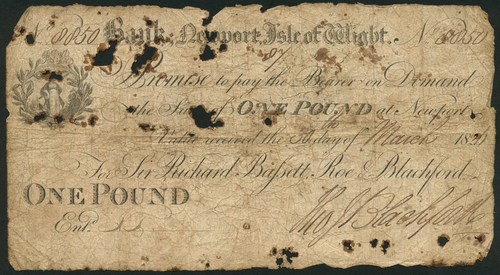 No. 8850 Bank, Newport, Isle of Wight. No. 8850
Promise to pay the Bearer on Demand
the Sum of ONE POUND at Newport
Value received the 30th day of March 18
For Sir Richard Bassett, Roe & Blachford
ONE POUND
Entd.
Blachford